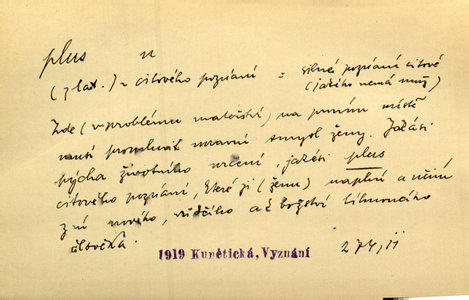 plus n
(z lat.) v citového poznání = silné poznání citové
(jakého nemá muž)
Zde (v problému mateřství) na prvním místě
musí promluvit mravní smysl ženy. Jakási
pýcha životního určení, jakési plus
citového poznání, které ji (ženu) naplní a učiní
z ní nového, až božství
člověka.
1919 Kunětická, Vyznání
274, II